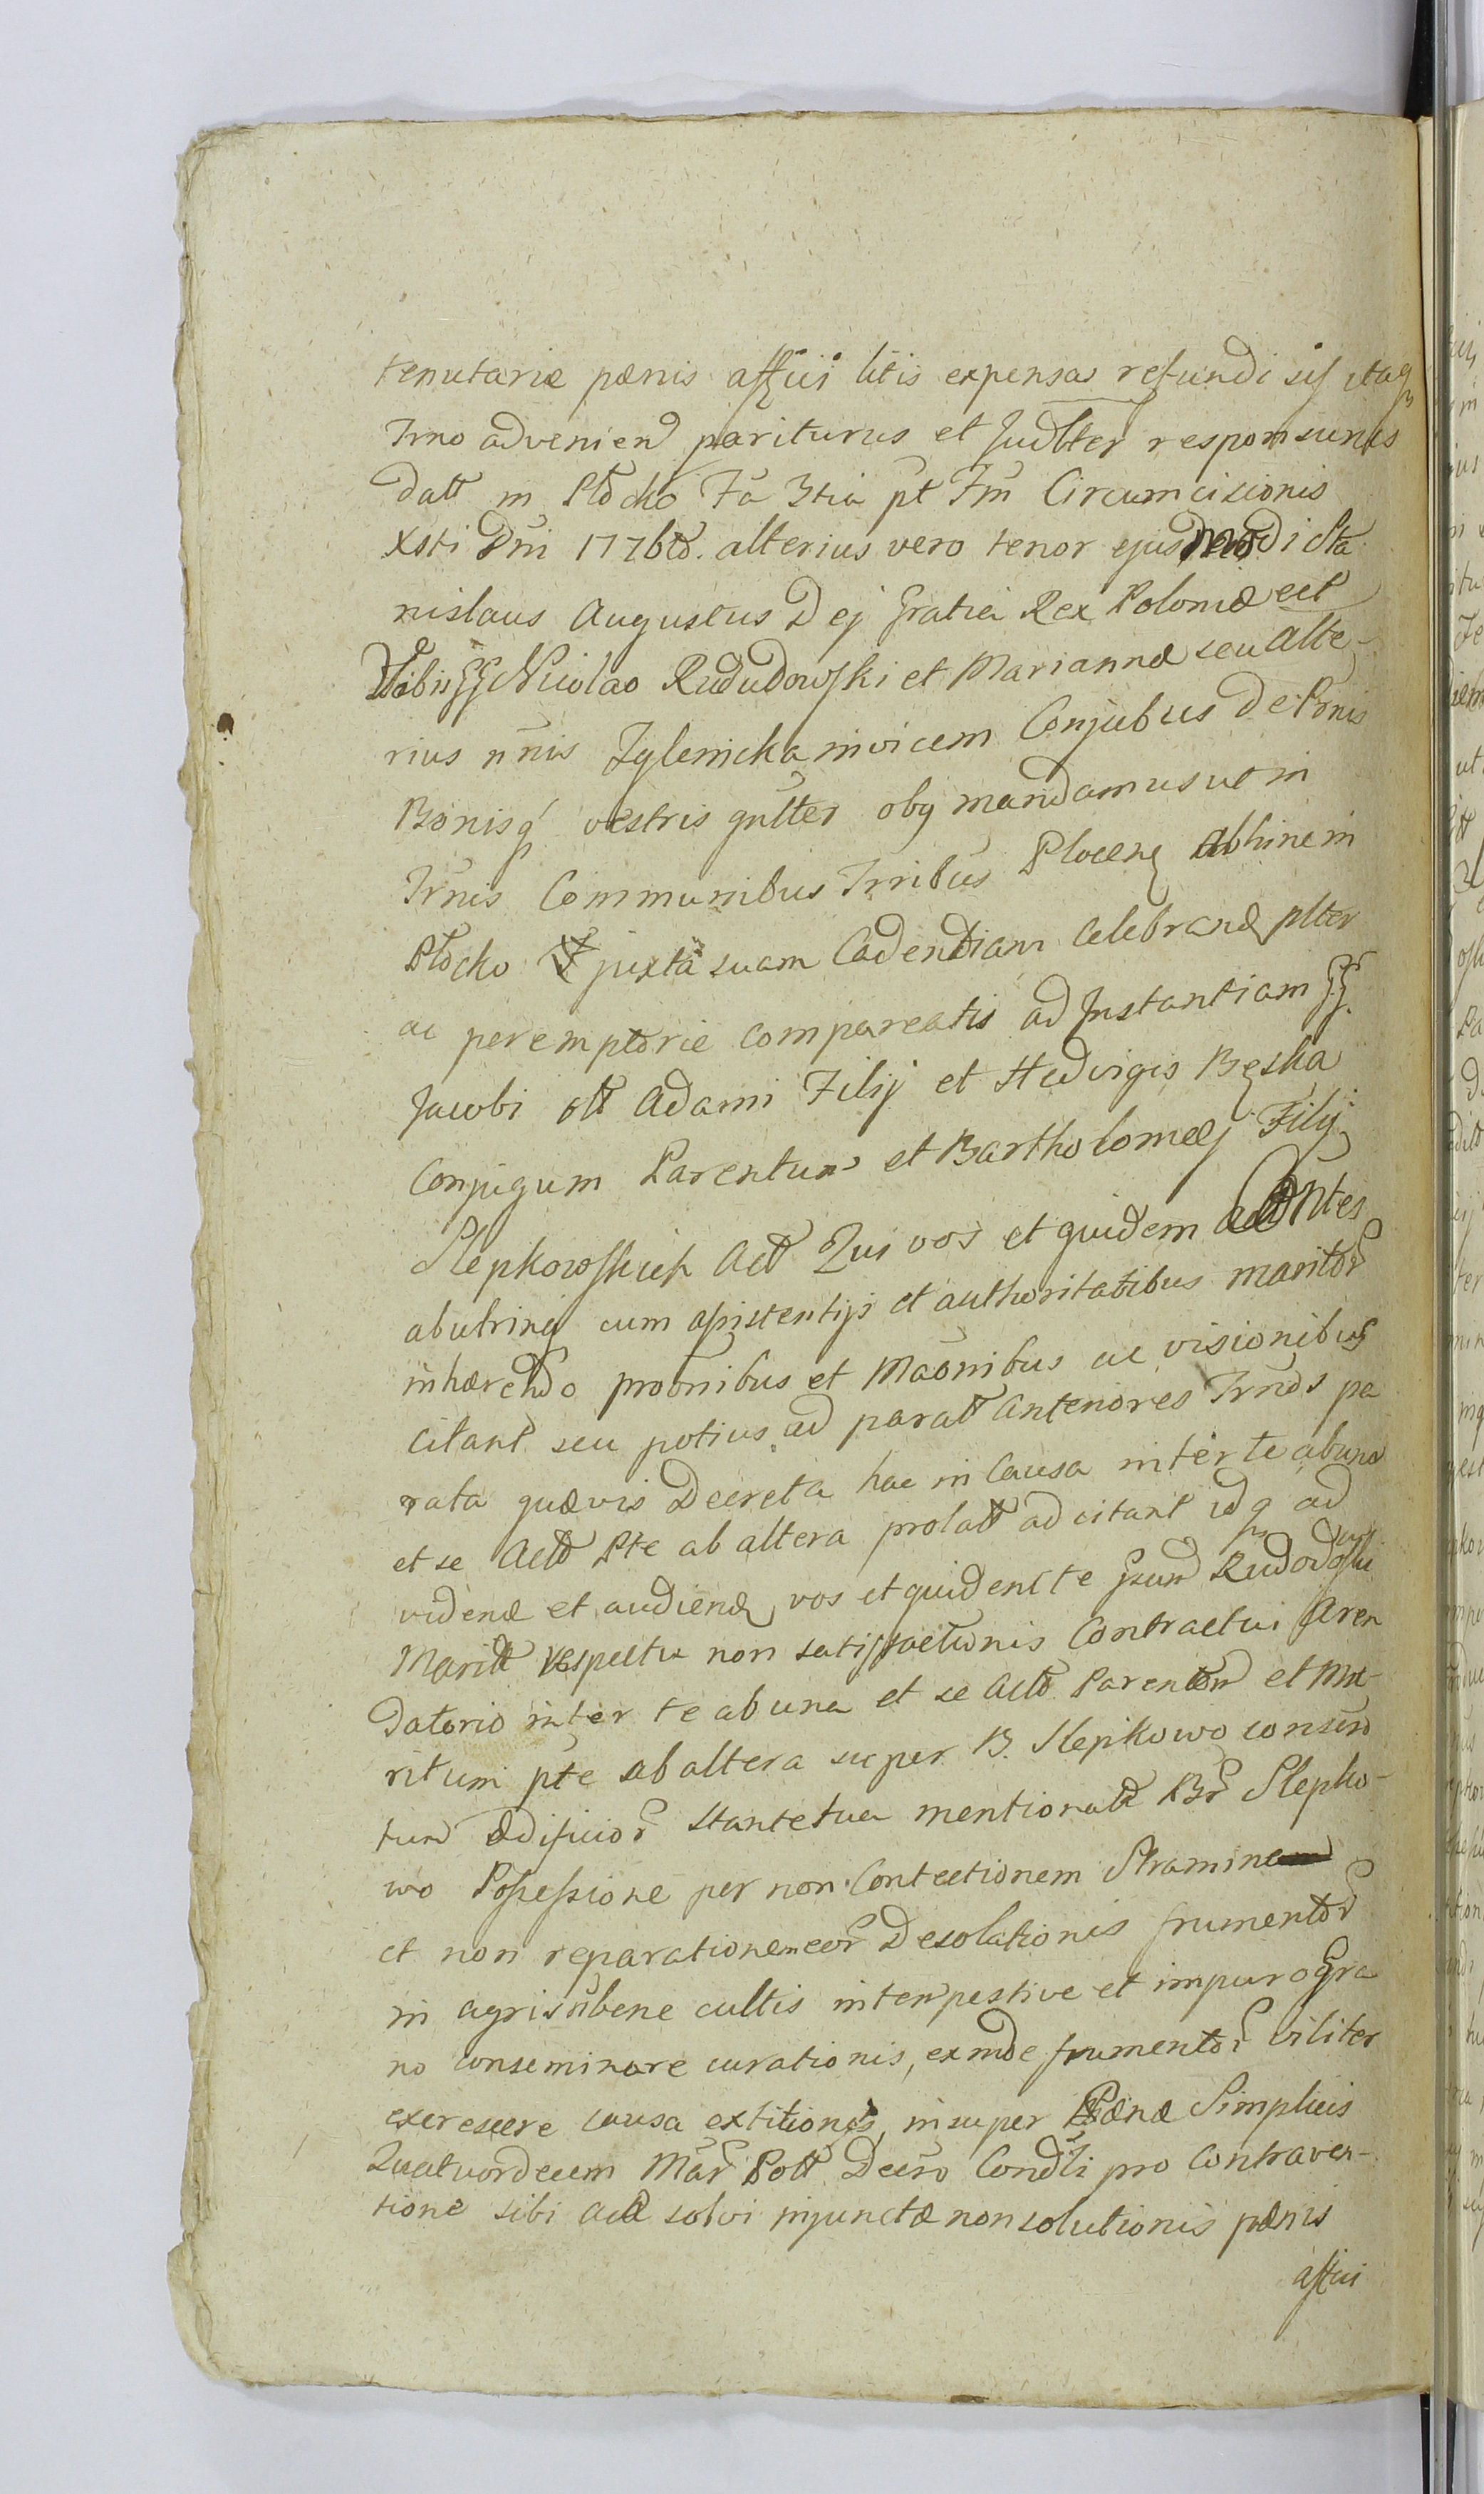 tenutariæ pænis affici litis expensas refundi sis itaq
Trno advenien pariturus et Judlter responsurus
datt in Płocko Fa 3tia pt Fm Circumcisionis
Xsti Dni 1776to. alterius vero tenor ejusmodi Sta
nislaus Augustus Dej Gratia Rex Poloniæ ect
Vobis GG Nicolao Rududowski et Mariannæ seu alte-
rius nnis Zglenicka invicem Conjubus de Pnis
Bonisq vestris gnlter obq mandamus ut in
Trnis Communibus Trribus Plocen abhinc in
Płocko juxta suam Cadentiam celebrand plter
ac peremptorie compareatis ad Instantiam GG
Jacobi olt Adami Filij et Hedvigis Bęska
Conjugum Parentum et Bartholomæj Filij
Slepkowskich Act Qui vos et quidem
ab utrinq cum assistentijs et authoritatibus maritor
inhærendo proonibus et Maonibus ac visionibus
citant seu potius ad paratt anteriores Trnos pa
rata quævis Decreta hac in Causa inter te ab una
et se Acto Pte ab altera prolatt adcitant idq ad
vidend et audiend vos et quidem te Gsum Rudodowski
Maritt respectu non satisfactionis Contractui Aren
datorio inter te ab una et se Acto Parentem et Ma-
ritum pte ab altera super B. Slepkowo
tum ædificior stante tua mentionatt Br Slepko-
wo Possessione per non Contectionem Stramine
et non reparationem eor Desolationis frumentor
in agris nbene cultis intempestive et impuro gra
no conseminare curationis, exinde frumentor viliter
excrescere causa extitionis, insuper Pænæ Simplicis
Quatuordecem Mar Poll Decro Condli pro Contraven-
tione sibi Act solvi injunctæ non solutionis pænis
affici